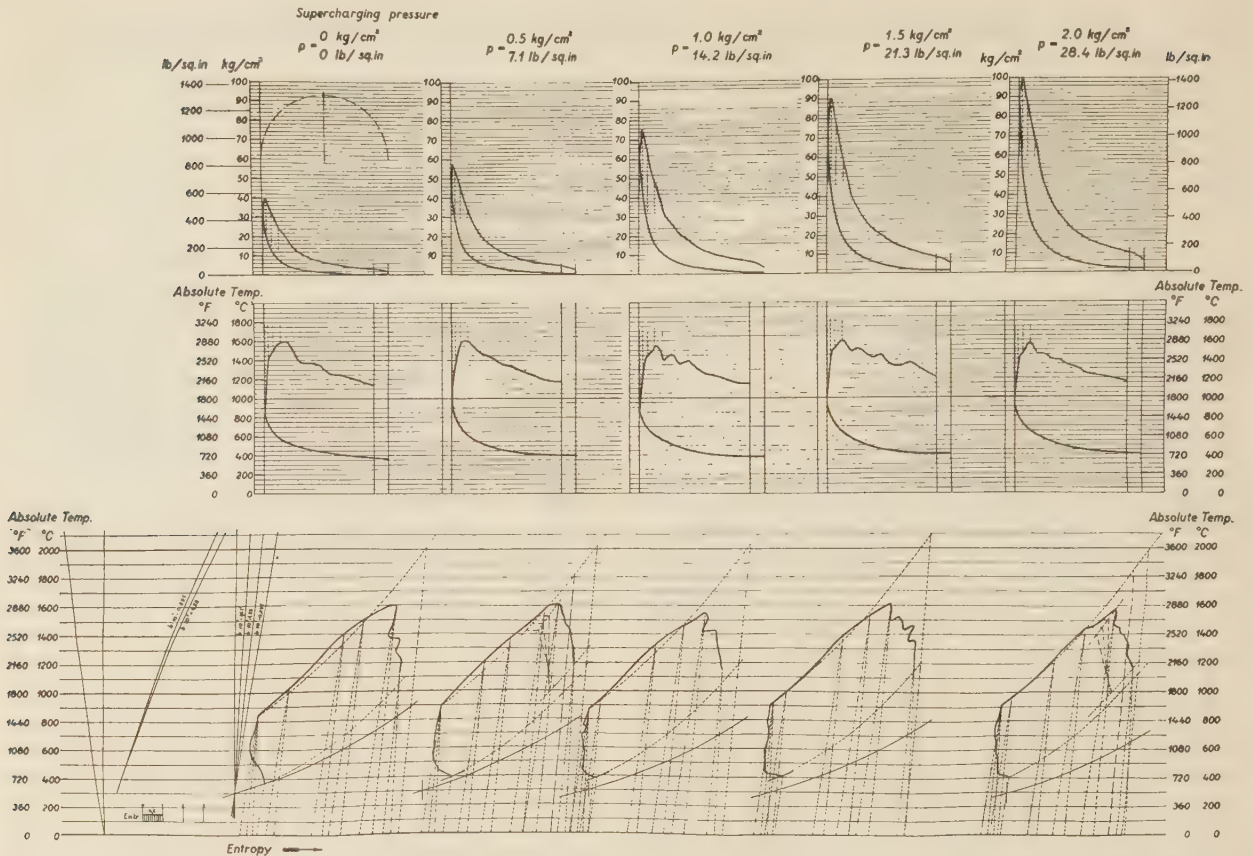 Supercharging pressure
p = 0 kg/cm² 0 lb/sq.in
p = 0.5 kg/cm² 7.1 lb/sq.in
p = 1.0 kg/cm² 14.2 lb/sq.in
p = 1.5 kg/cm² 21.3 lb/sq.in
p = 2.0 kg/cm² 28.4 lb/sq.in
lb/sq.in kg/cm²
kg/cm²
lb/sq.in
1400 100
1200 90
80
1000 70
800 60
50
600 40
400 30
20
200 10
0
100
90
80
70
60
50
40
30
20
10
100
90
80
70
60
50
40
30
20
10
100
90
80
70
60
50
40
30
20
10
100
90
80
70
60
50
40
30
20
10
1400
1200
1000
800
600
400
200
0
Absolute Temp.
°F °C
3240 1800
2880 1600
2520 1400
2160 1200
1800 1000
1440 800
1080 600
720 400
360 200
0 0
Absolute Temp.
°F °C
3240 1800
2880 1600
2520 1400
2160 1200
1800 1000
1440 800
1080 600
720 400
360 200
0 0
Absolute Temp.
°F °C
3600 2000
3240 1800
2880 1600
2520 1400
2160 1200
1800 1000
1440 800
1080 600
720 400
360 200
0 0
Absolute Temp.
°F °C
3600 2000
3240 1800
2880 1600
2520 1400
2160 1200
1800 1000
1440 800
1080 600
720 400
360 200
0 0
Entr
Entropy